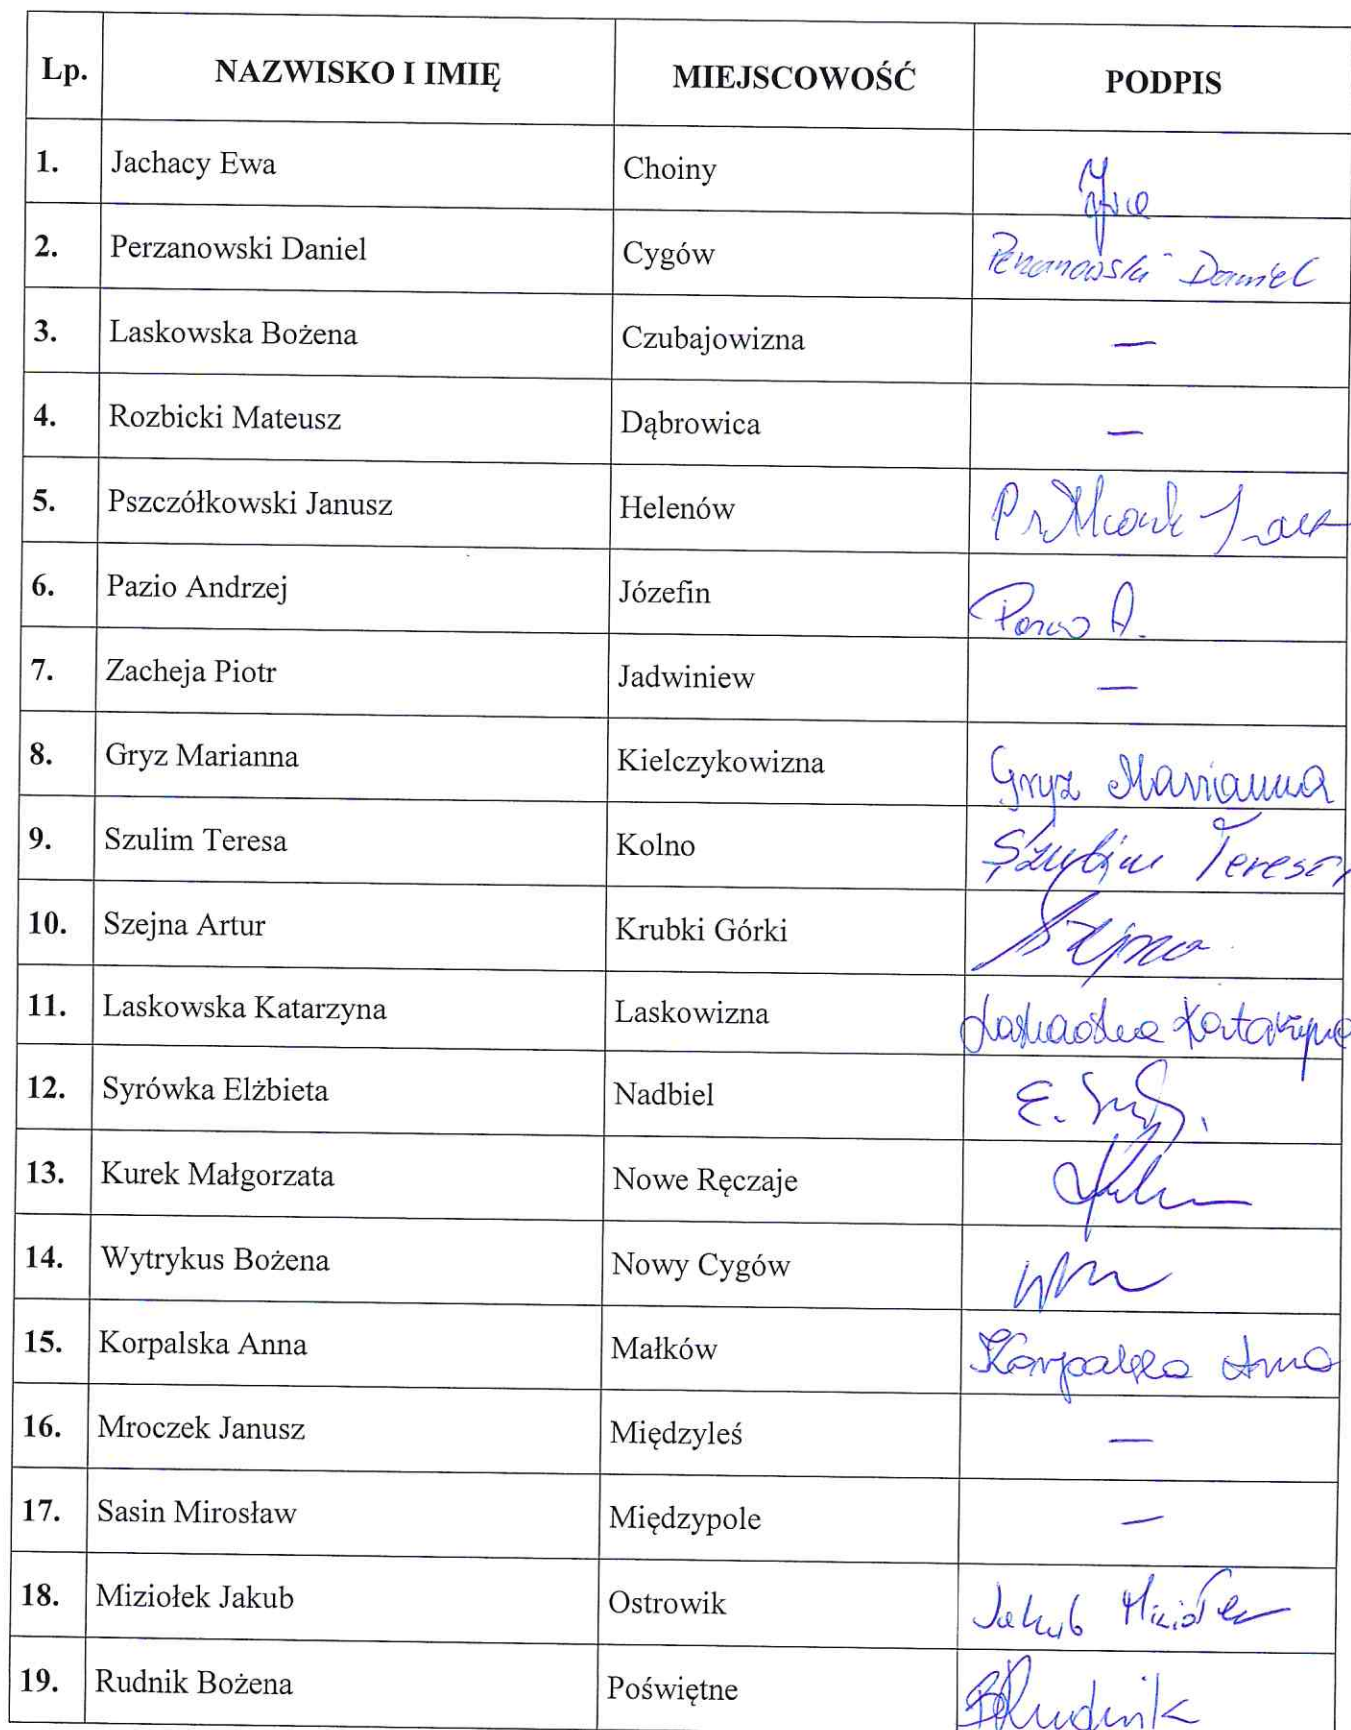 Lp. NAZWISKO I IMIĘ MIEJSCOWOŚĆ PODPIS
1. Jachacy Ewa Choiny
2. Perzanowski Daniel Cygów Perzanowski Daniel
3. Laskowska Bożena Czubajowizna —
4. Rozbicki Mateusz Dąbrowica —
5. Pszczółkowski Janusz Helenów
6. Pazio Andrzej Józefin Pazio A.
7. Zacheja Piotr Jadwiniew —
8. Gryz Marianna Kielczykowizna Gryz Marianna
9. Szulim Teresa Kolno Szulim Teresa
10. Szejna Artur Krubki Górki Szejna
11. Laskowska Katarzyna Laskowizna Laskowska Katarzyna
12. Syrówka Elżbieta Nadbiel E.
13. Kurek Małgorzata Nowe Ręczaje
14. Wytrykus Bożena Nowy Cygów
15. Korpalska Anna Małków Korpalska Anna
16. Mroczek Janusz Międzyleś —
17. Sasin Mirosław Międzypole —
18. Miziołek Jakub Ostrowik Jakub Miziołek
19. Rudnik Bożena Poświętne BRudnik